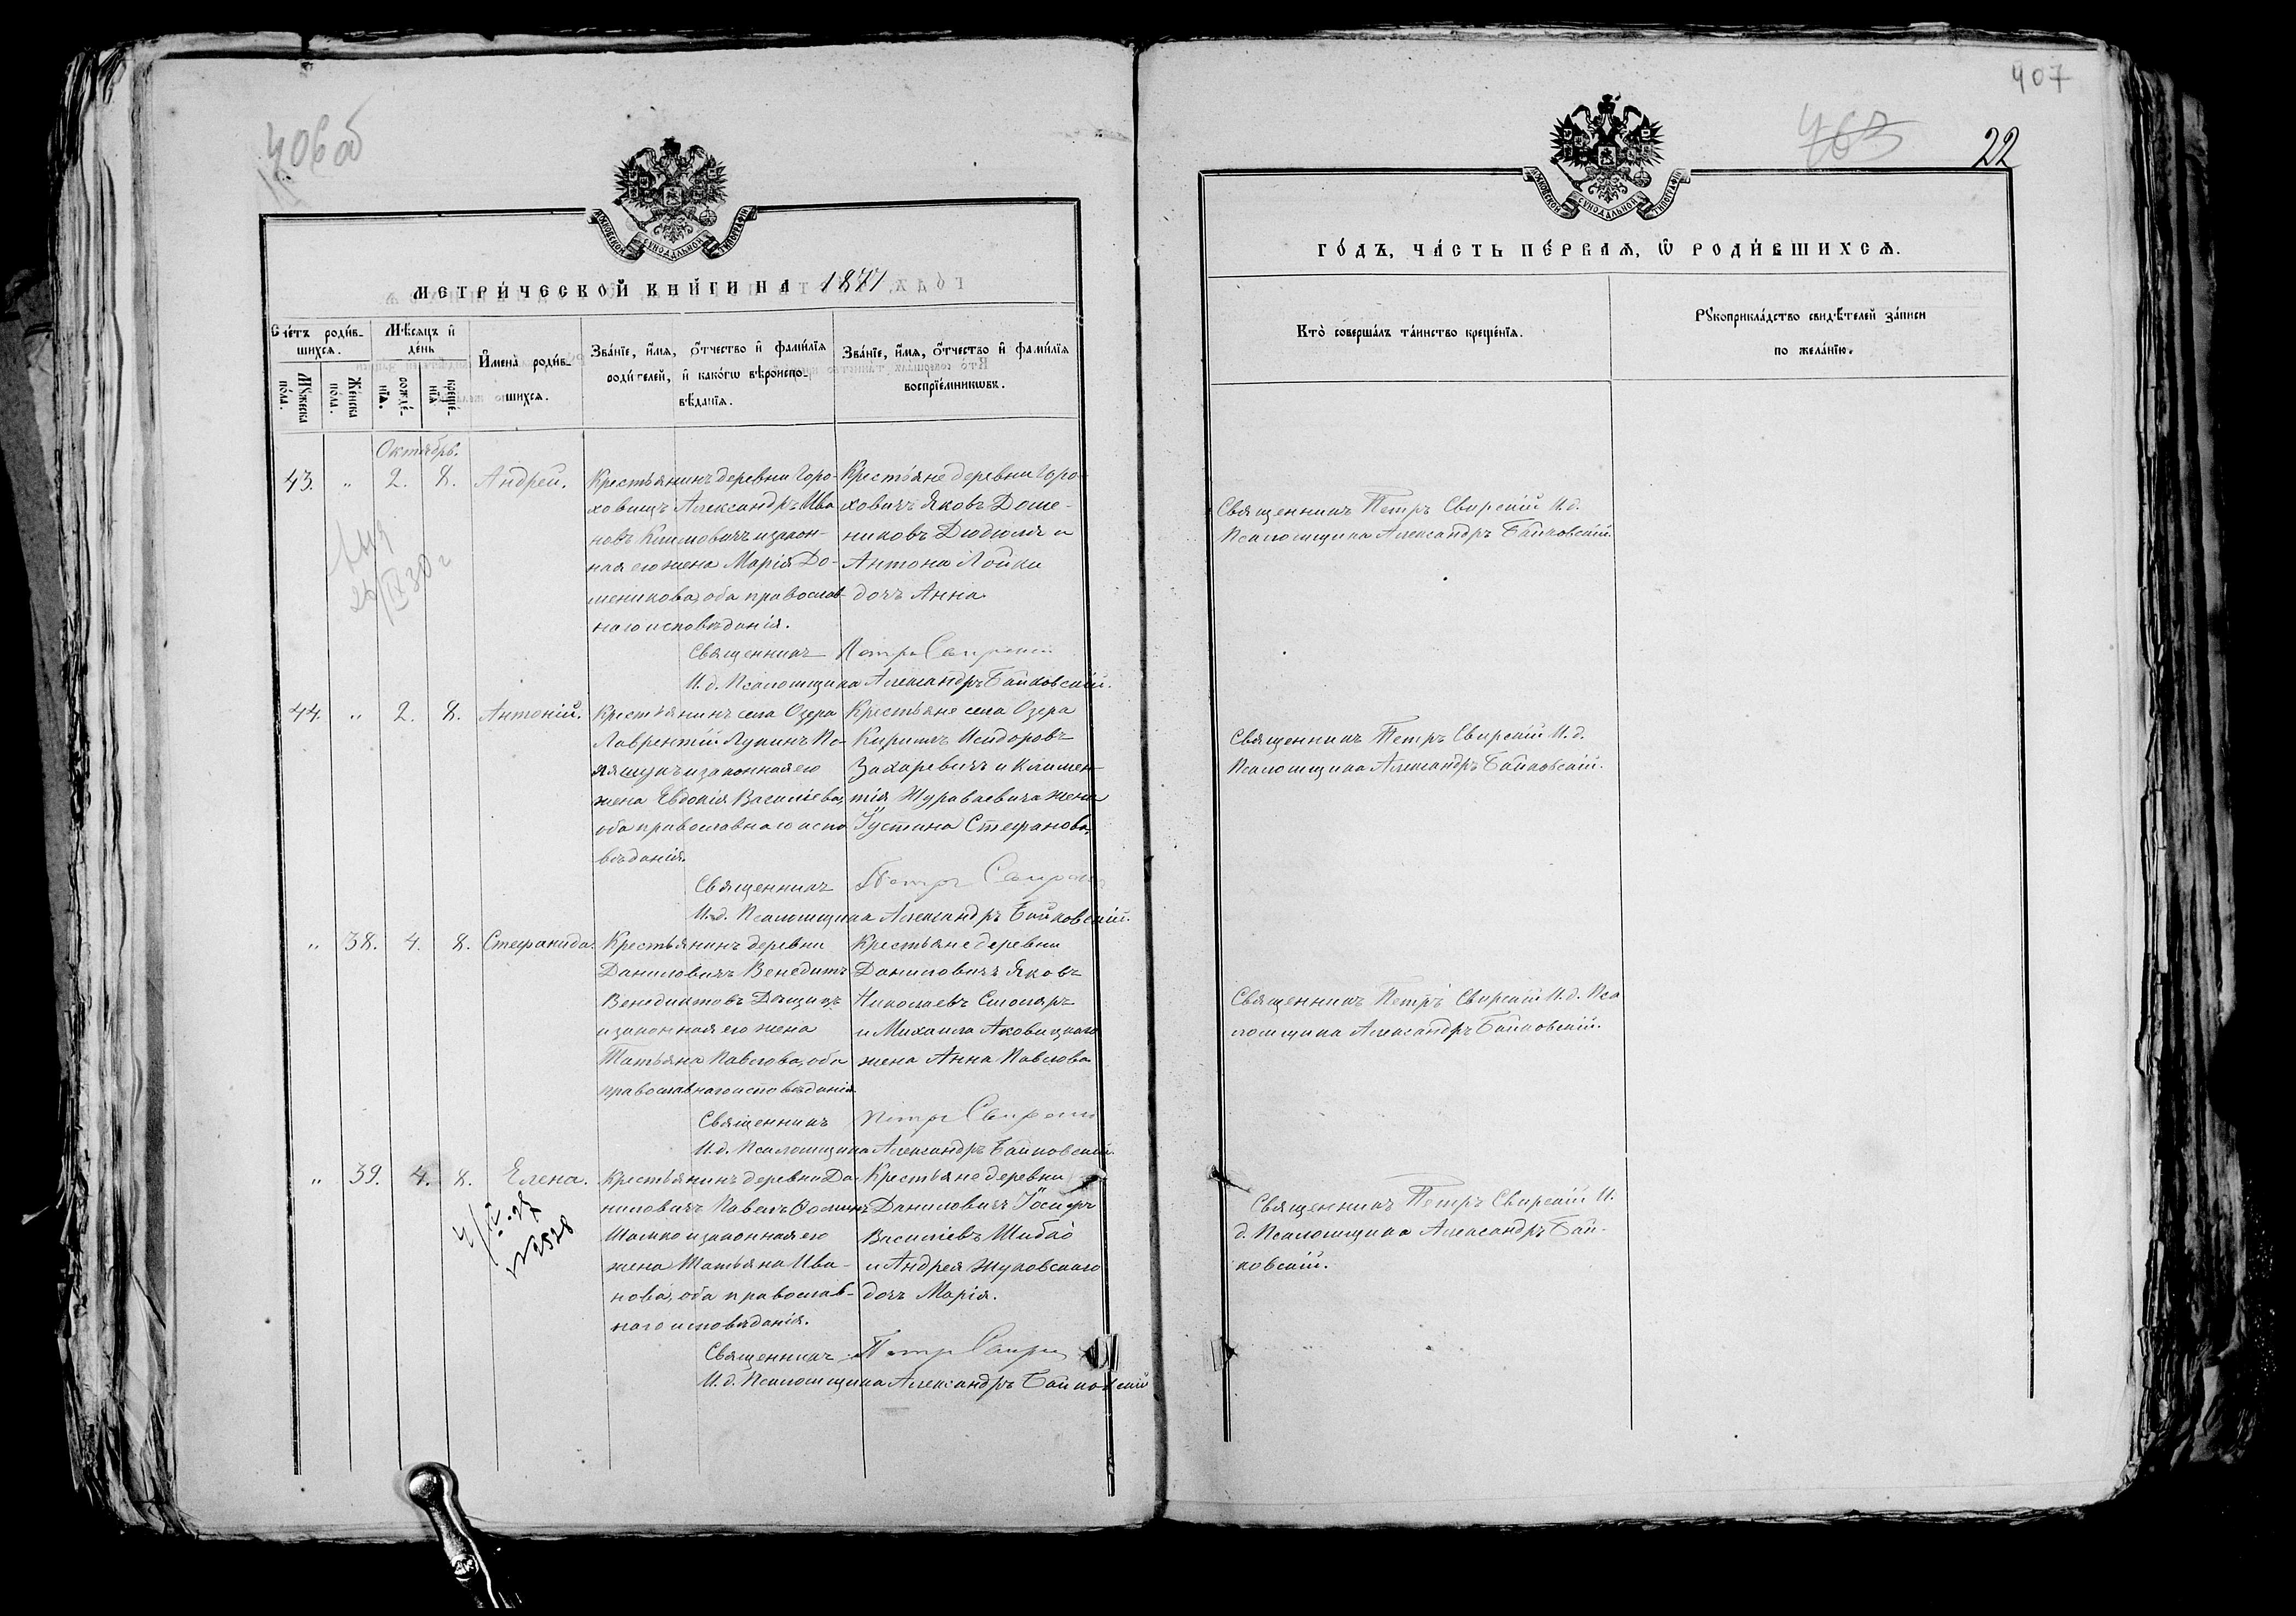 406 об
МОСКОВСКОЙ СѴНОДАЛЬНОЙ ТИПОГРАФІИ
МЕТРИ́ЧЕСКОЙ КНИ́ГИ НА 1871
Сче́тъ роди́в-
шихсѧ.
Мѣ́сѧцъ и҆
де́нь
Мꙋ́жеска
по́ла.
Же́нска
по́ла.
рожде́-
нїѧ.
креще́-
нїѧ
И҆мена̀ роди́в-
шихсѧ.
Зва́нїе, и҆́мѧ, ѻ҆́тчество и҆ фами́лїѧ
роди́телей, и҆ како́гѡ вѣроиспо-
вѣ́данїѧ.
Зва́нїе, и҆́мѧ, ѻ҆́тчество и҆ фами́лїѧ
воспрїе́мникѡвъ.
Октябрь.
43. " 2. 8. Андрей.
Крестьянинъ деревни Горо-
ховищъ Александръ Ива
новъ Климовичъ и закон-
ная его жена Марія До-
меникова, оба православ-
наго исповѣданія.
Крестьяне деревни Горо-
ховичъ Яковъ Доме-
никовъ Дюдюля и
Антона Лойки
дочь Анна
Священникъ Петръ Свирскій
И. д. Псаломщика Александръ Байковскій.
44. " 2. 8. Антоній.
Крестьянинъ села Озера
Лаврентій Лукинъ По-
ляшукъ и законная его
жена Евдокія Васильева,
оба православнаго испо
вѣданія.
Крестьяне села Озера
Кириллъ Исидоровъ
Захаревичъ и Климен-
тія Журавлевича жена
Іустина Стефанова,
Священникъ Петръ Свирскій
И. д. Псаломщика Александръ Байковскій.
" 38. 4. 8. Стефанида.
Крестьянинъ деревни
Даниловичъ Венедитъ
Венедиктовъ
и законная его жена
Татьяна Павлова, оба
православнаго исповѣданія
Крестьяне деревни
Даниловичъ Яковъ
Николаевъ Столяръ
и Михаила
жена Анна Павлова
Священникъ Петръ Свирскій
И. д. Псаломщика Александръ Байковскій.
" 39. 4. 8. Елена.
Крестьянинъ деревни Да-
ниловичъ Павелъ Ѳоминъ
Шамко и законная его
жена Татьяна Ива-
нова, оба православ-
наго исповѣданія.
Крестьяне деревни
Даниловичъ Іосифъ
Васильевъ Шибко
и Андрея Жуковскаго
дочь Марія.
Священникъ Петръ Свирскій
И. д. Псаломщика Александръ Байковскій
407
463
22
МОСКОВСКОЙ СѴНОДАЛЬНОЙ ТИПОГРАФІИ
ГО́ДЪ, ЧА́СТЬ ПЕ́РВАѦ, Ѡ҆ РОДИ́ВШИХСѦ.
Кто̀ соверша́лъ та́инство креще́нїѧ.
Рꙋкоприкла́дство свидѣ́телей за́писи
по жела́нїю.
Священникъ Петръ Свирскій И. д.
Псаломщика Александръ Байковскій.
Священникъ Петръ Свирскій И. д.
Псаломщика Александръ Байковскій.
Священникъ Петръ Свирскій И. д. Пса
ломщика Александръ Байковскій.
Священникъ Петръ Свирскій И.
д. Псаломщика Александръ Бай-
ковскій.